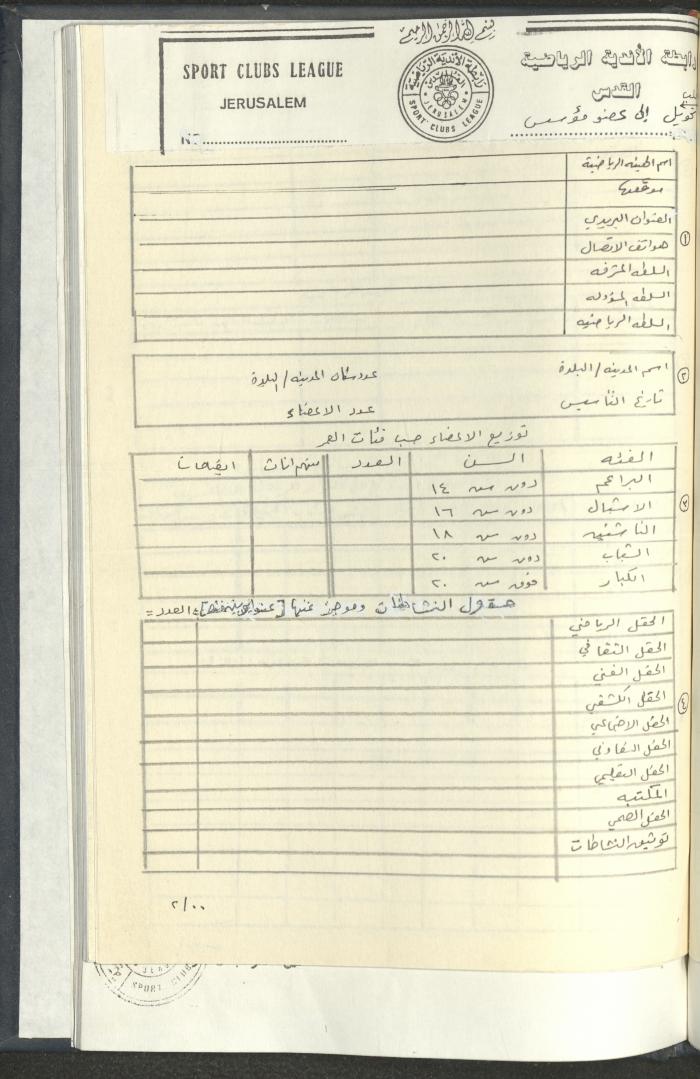 بسم الله الرحمن الرحيم
رابطة الأندية الرياضية
القدس
SPORT CLUBS LEAGUE
JERUSALEM
رابطة الأندية الرياضية
JERUSALEM
SPORT CLUBS LEAGUE
طلب
تحويل إلى عضو مؤسس
Nº
اسم الهيئه الرياضية
موقعها
العنوان البريدي
١
هواتف الاتصال
السلطه المشرفه
السلطه المسؤوله
السلطه الرياضيه
٢
اسم المدينه/البلدة
عدد سكان المدينه/البلدة
تاريخ التأسيس
عدد الاعضاء
توزيع الاعضاء حسب فئات العمر
الفئه السن العدد منهم اناث ايضاحات
البراعم دون سن ١٤
٣
الاشبال دون سن ١٦
الناشئين دون سن ١٨
الشباب دون سن ٢٠
الكبار فوق سن ٢٠
حقول النشاطات وموجز عنها العدد =
الحقل الرياضي
الحقل الثقافي
الحقل الفني
٤
الحقل الكشفي
الحقل الاجتماعي
الحقل التعاوني
الحقل التعليمي
المكتبه
الحقل الصحي
توثيق النشاطات
٢/٠٠
SPORT CLUB